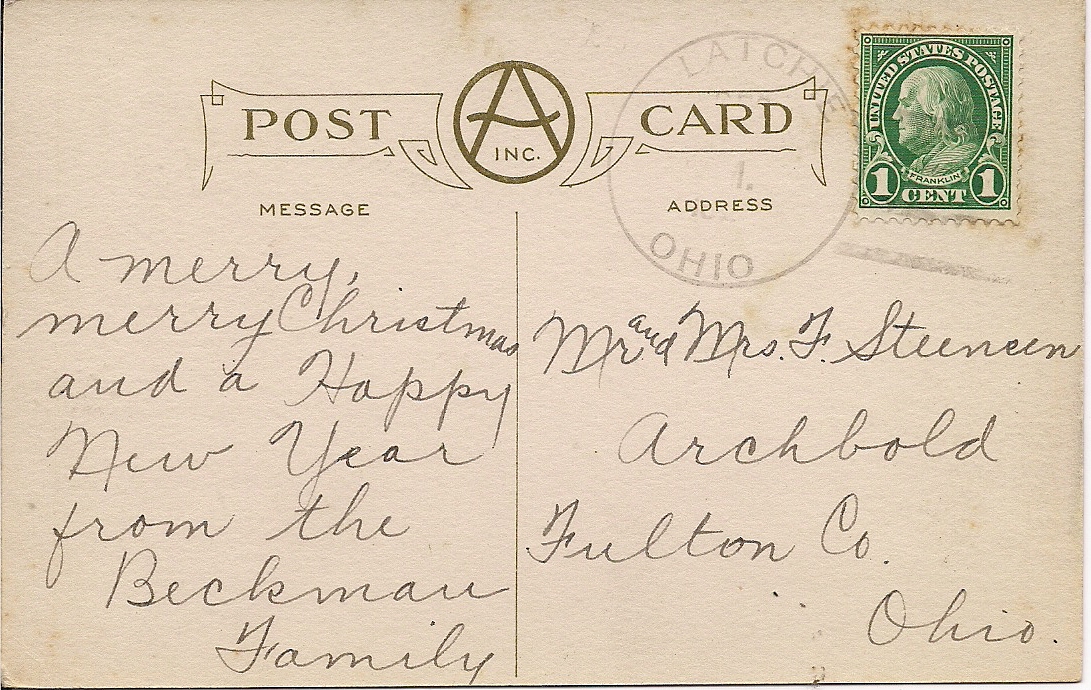 POST CARD
A
INC.
LATCHIE
1.
OHIO
UNITED STATES POSTAGE
FRANKLIN
1 CENT 1
MESSAGE
ADDRESS
A merry,
merry Christmas
and a Happy
New Year
from the
Beckman
Family
Mr and Mrs. F. Steensen
Archbold
Fulton Co.
Ohio.